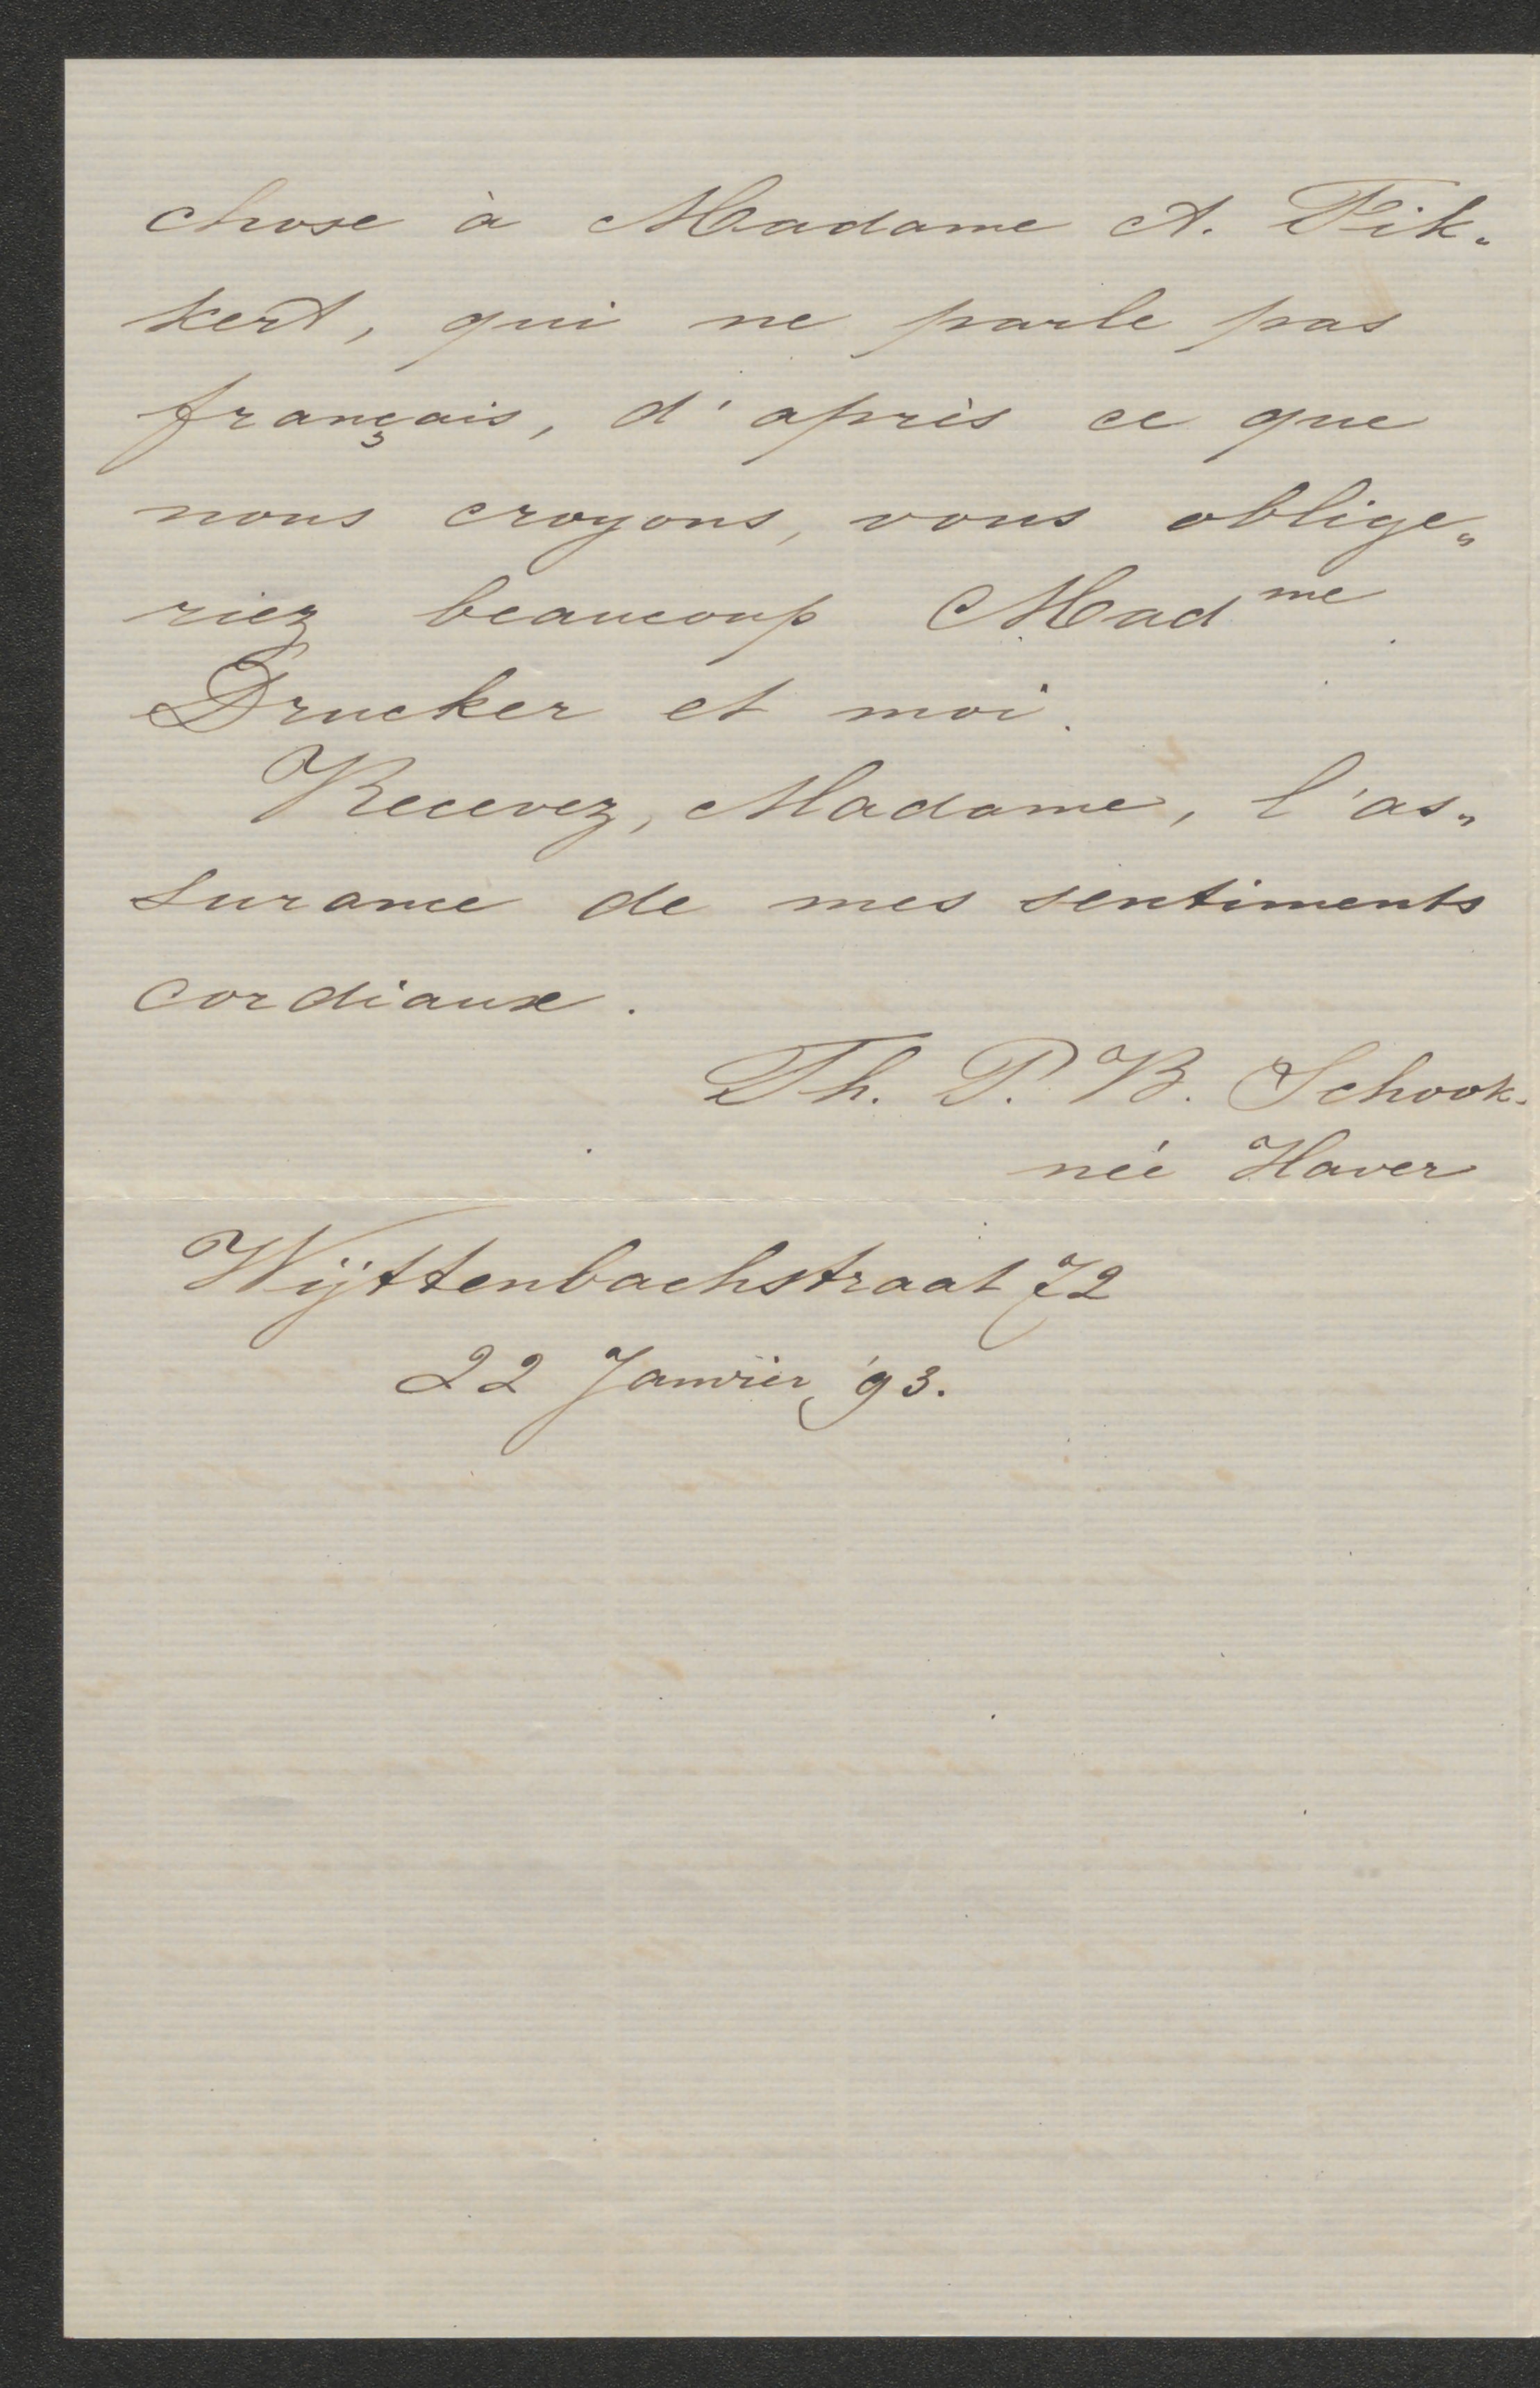 chose à Madame A. Fik„
kert, qui ne parle pas
français, d'après ce que
nous croyons, vous oblige„
riez beaucoup Mad me
Drucker et moi.
Recevez, Madame, l'as„
surance de mes sentiments
cordiaux.
Th. P. B. Schook-
née Haver
Wijttenbachstraat 72
22 Janvier, '93.